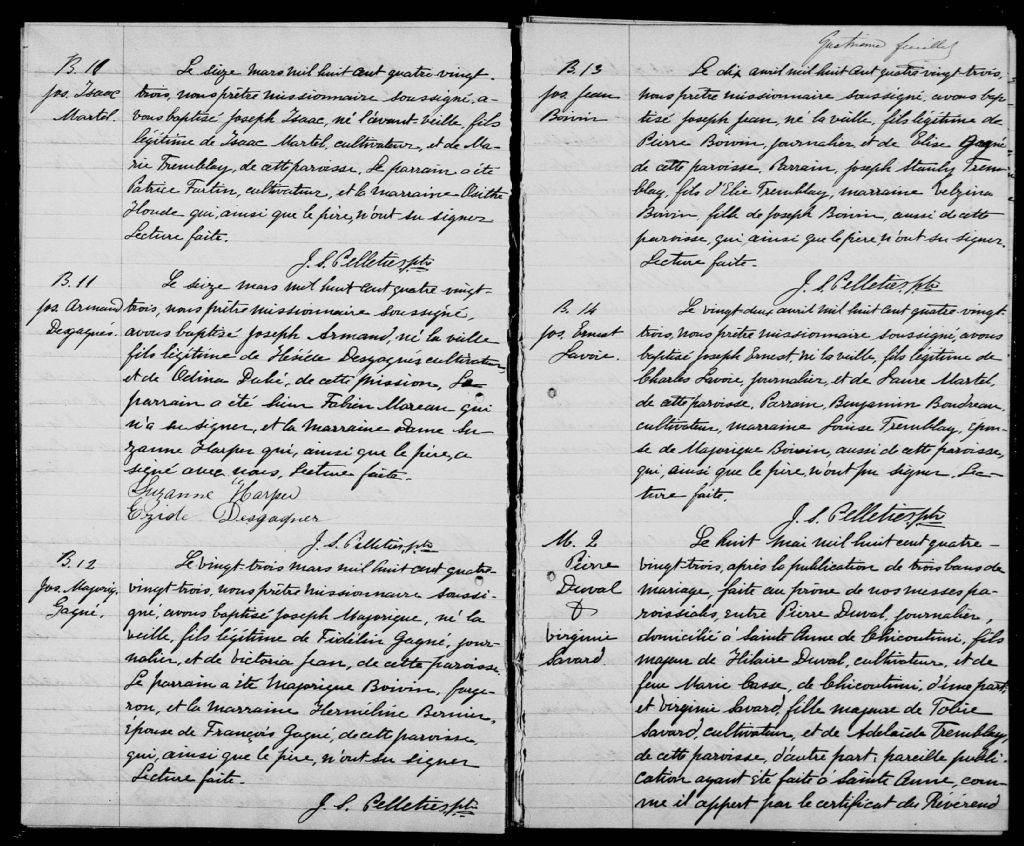 B. 10
Jos. Isaac
Martel.
Le seize mars mil huit cent quatre vingt-
trois, nous prêtre missionnaire soussigné, a-
vons baptisé Joseph Isaac, né l'avant veille, fils
légitime de Isaac Martel, cultivateur, et de Ma-
rie Tremblay, de cette paroisse. Le parrain a été
Patrice Fortin, cultivateur, et la marraine
Houde qui, ainsi que le père, n'ont su signer
Lecture faite.
J. S. Pelletier ptre
B. 11
Jos. Armand
Desgagnés.
Le seize mars mil huit cent quatre vingt-
trois, nous prêtre missionnaire soussigné,
avons baptisé Joseph Armand, né la veille
fils légitime de Desgagnés, cultivateur,
et de Odina Dubé, de cette mission. Le
parrain a été Fabien Moreau qui
n'a su signer, et la marraine dame Su-
zanne Harper qui, ainsi que le père, a
signé avec nous. Lecture faite.
Suzanne Harper
Ezide Desgagner
J. S. Pelletier ptre
B. 12
Jos. Majoriq.
Gagné.
Le vingt-trois mars mil huit cent quatre-
vingt-trois, nous, prêtre missionnaire soussi-
gné, avons baptisé Joseph Majorique, né la
veille, fils légitime de Fidélin Gagné, jour-
nalier, et de Victoria Jean, de cette paroisse.
Le parrain a été Majorique Boivin, forge-
ron, et la marraine Herméline Bernier,
épouse de François Gagné, de cette paroisse,
qui, ainsi que le père, n'ont su signer
Lecture faite.
J. S. Pelletier ptre
feuillet
B. 13
Jos. Jean
Boivin
Le dix avril mil huit cent quatre vingt trois,
nous prêtre missionnaire soussigné, avons bap-
tisé Joseph Jean, né la veille, fils légitime de
Pierre Boivin, journalier et de Elise Gagné
de cette paroisse. Parrain, Joseph Stanly Trem-
blay, fils d'Elie Tremblay, marraine Velzina
Boivin, fille de Joseph Boivin, aussi de cette
paroisse, qui ainsi que le père n'ont su signer.
Lecture faite.
J. S. Pelletier ptre
B. 14
Jos. Ernest
Lavoie.
Le vingt deux avril mil huit cent quatre vingt
trois, nous prêtre missionnaire soussigné, avons
baptisé Joseph Ernest né la veille, fils légitime de
Charles Lavoie, journalier, et de Laure Martel,
de cette paroisse. Parrain, Benjamin Boudreau,
cultivateur, marraine Louise Tremblay, épou-
se de Majorique Boivin, aussi de cette paroisse,
qui, ainsi que le père, n'ont pu signer. Lec-
ture faite.
J. S. Pelletier ptre
M. 2
Pierre
Duval
&
Virginie
Savard
Le huit Mai mil huit cent quatre-
vingt-trois, après la publication de trois bans de
mariage, faite au prône de nos messes pa-
roissiales, entre Pierre Duval, journalier,
domicilié à Sainte Anne de Chicoutimi, fils
majeur de Hilaire Duval, cultivateur, et de
feue Marie Casse, de Chicoutimi, d'une part,
et Virginie Savard, fille majeure de Tobie
Savard, cultivateur, et de Adelaïde Tremblay
de cette paroisse, d'autre part; pareille publi-
cation ayant été faite à Sainte Anne, com-
me il appert par le certificat du Révérend